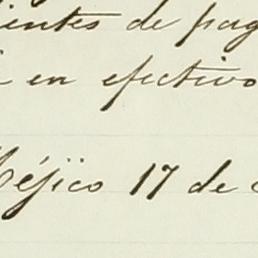 ientes de pag
en efectivo
Méjico 17 de